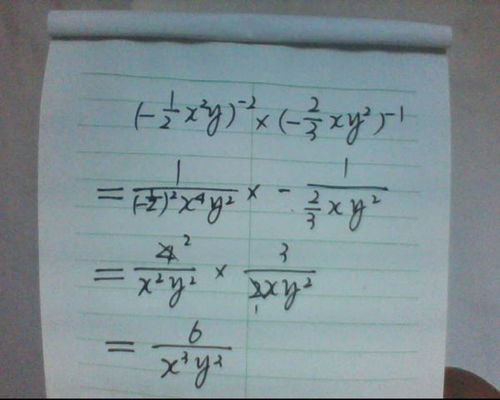 (-1/2 x²y)⁻² × (-2/3 xy²)⁻¹
= 1/((-1/2)² x⁴y²) × - 1/(2/3 xy²)
= 4 2/(x²y²) × 3/(2 1 xy²)
= 6/(x³y³)